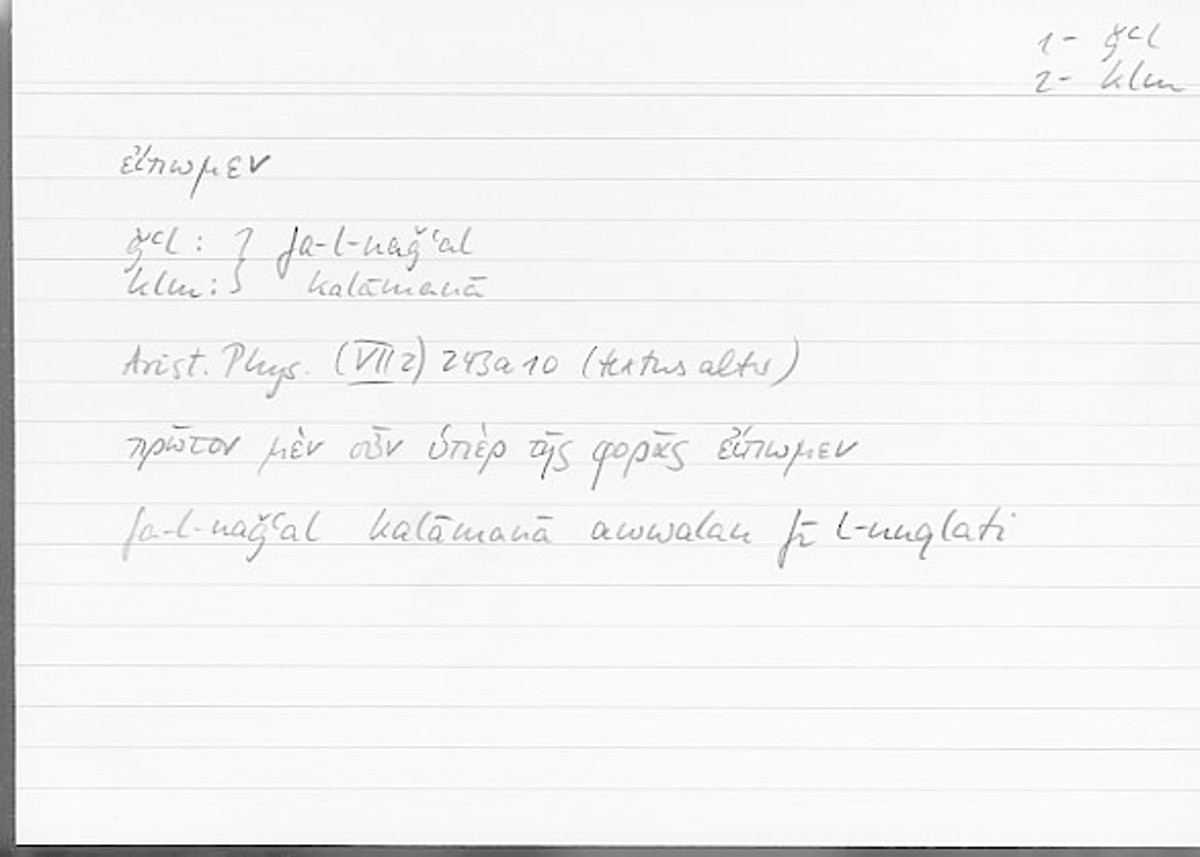 1- ǧʿl
2- klm
εἴπωμεν
ǧʿl : } fa-l-naǧʿal
klm : } kalāmanā
Arist. Phys. (VII 2) 243a10 (textus alter)
πρῶτον μὲν οὖν ὑπὲρ τῆς φορᾶς εἴπωμεν
fa-l-naǧʿal kalāmanā awwalan fī l-nuqlati